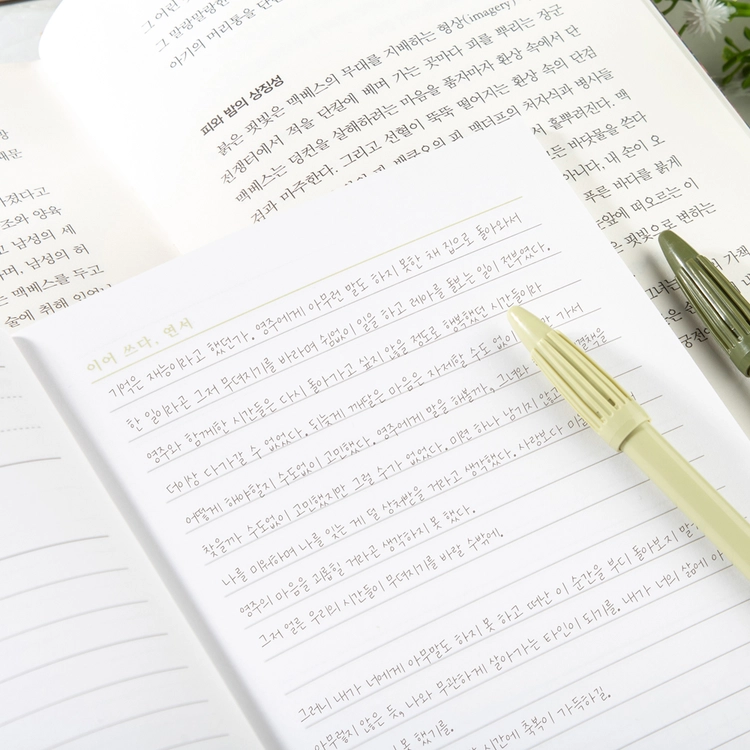 그 어린
그 말랑말랑한
아기의 머리통을 단
피와 밤의 상징성
붉은 핏빛은 맥베스의 무대를 지배하는 형상(imagery)
전쟁터에서 적을 단칼에 베며 가는 곳마다 피를 뿌리는 장군
맥베스는 덩컨을 살해하려는 마음을 품자마자 환상 속에서 단
검과 마주한다. 그리고 선혈이 뚝뚝 떨어지는 환상 속의 단검
피 맥더프의 처자식과 병사들
서 흩뿌려진다. 맥
모든 바닷물을 쓴다
아니다. 내 손이 오
푸른 바다를 붉게
눈앞에 떠오르는 이
핏빛으로 변하는
그녀는
가책
궁전
가졌다고
조와 양육
고 남성의 세
며, 남성의 허
는 맥베스를 두고
술에 취해 있었나
이어 쓰다, 연서
기억은 재능이라고 했던가. 영주에게 아무런 말도 하지 못한 채 집으로 돌아와서
한 일이라곤 그저 무뎌지기를 바라며 쉼없이 일을 하고 레아를 돌보는 일이 전부였다.
영주와 함께한 시간들은 다시 돌아가고 싶지 않을 정도로 행복했던 시간들이라
더이상 다가갈 수 없었다. 뒤늦게 깨달은 마음은 자제할 수도 없이 한 가서
어떻게 해야할지 수도없이 고민했다. 영주에게 말을 해볼까, 그녀와 해결책을
찾을까 수도없이 고민했지만 그럴 수가 없었다. 미련 하나 남기지 않고
나를 미워하며 나를 잊는 게 덜 상처받을 거라고 생각했다. 사랑보다 미움
영주의 마음을 괴롭힐 거라곤 생각하지 못 했다.
그저 얼른 우리의 시간들이 무뎌지기를 바랄 수밖에.
그러니 내가 너에게 아무말도 하지 못 하고 떠난 이 순간을 부디 돌아보지 말
아무렇지 않은 듯, 나와 무관하게 살아가는 타인이 되기를. 내가 너의 삶에 아
못 했기를.
시간에 축복이 가득하길.